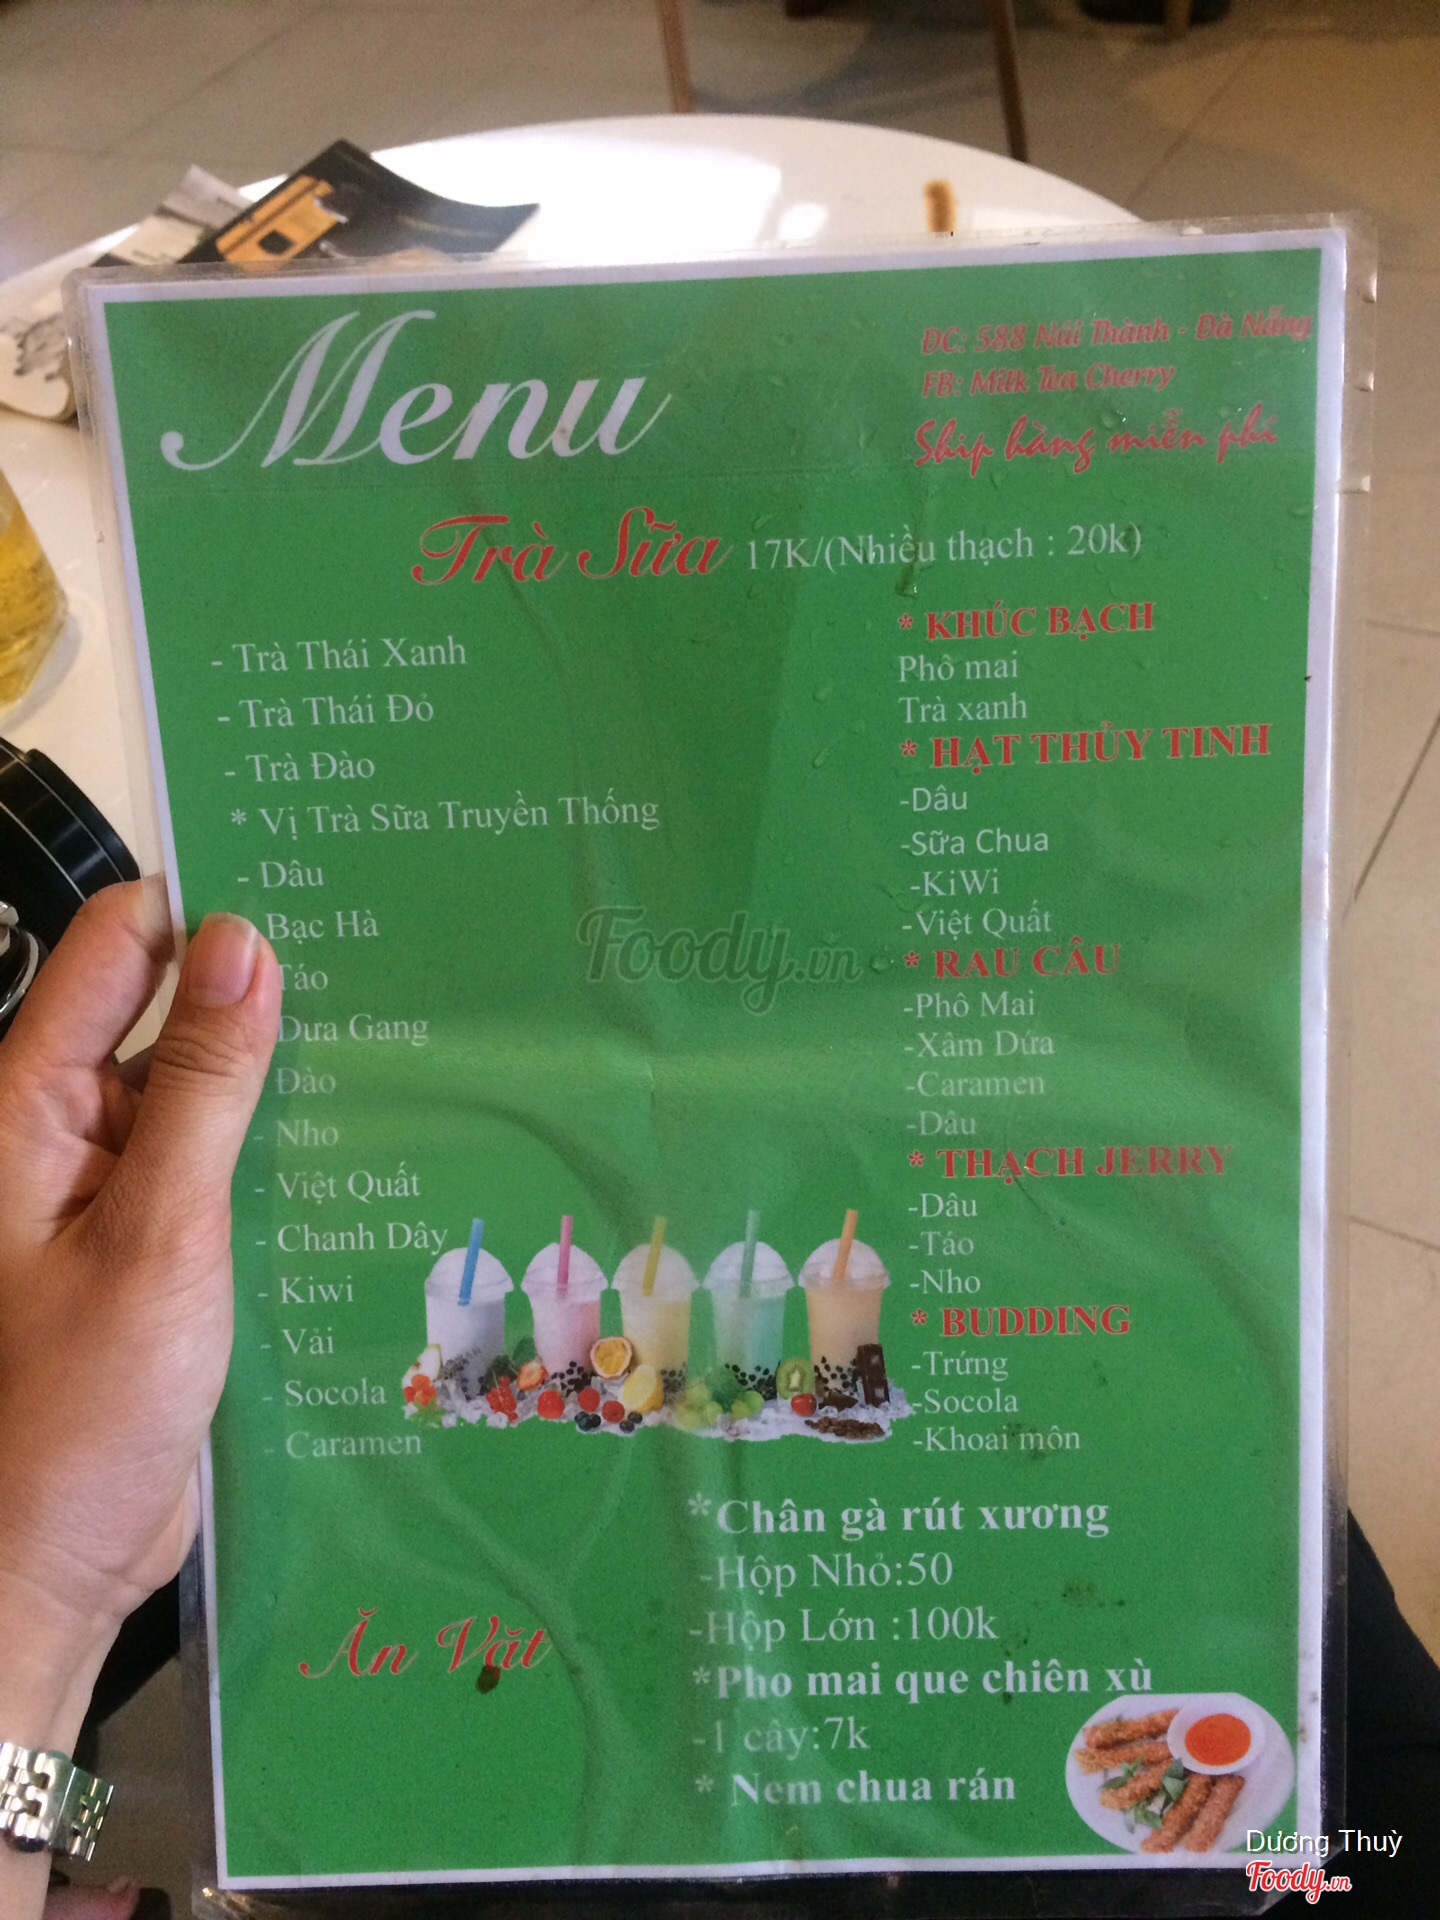 Menu
ĐC: 588 Núi Thành - Đà Nẵng
FB: Milk Tea Cherry
Ship hàng miễn phí
Trà Sữa 17K/(Nhiều thạch : 20k)
- Trà Thái Xanh
- Trà Thái Đỏ
- Trà Đào
* Vị Trà Sữa Truyền Thống
- Dâu
Bạc Hà
Táo
Dưa Gang
Đào
- Nho
- Việt Quất
- Chanh Dây
- Kiwi
- Vải
- Socola
- Caramen
* KHÚC BẠCH
Phô mai
Trà xanh
* HẠT THỦY TINH
-Dâu
-Sữa Chua
-KiWi
-Việt Quất
* RAU CÂU
-Phô Mai
-Xâm Dứa
-Caramen
-Dâu
* THẠCH JERRY
-Dâu
-Táo
-Nho
* BUDDING
-Trứng
-Socola
-Khoai môn
Foody.vn
Ăn Vặt
*Chân gà rút xương
-Hộp Nhỏ:50
-Hộp Lớn :100k
*Pho mai que chiên xù
-1 cây:7k
* Nem chua rán
Dương Thuỳ
Foody.vn